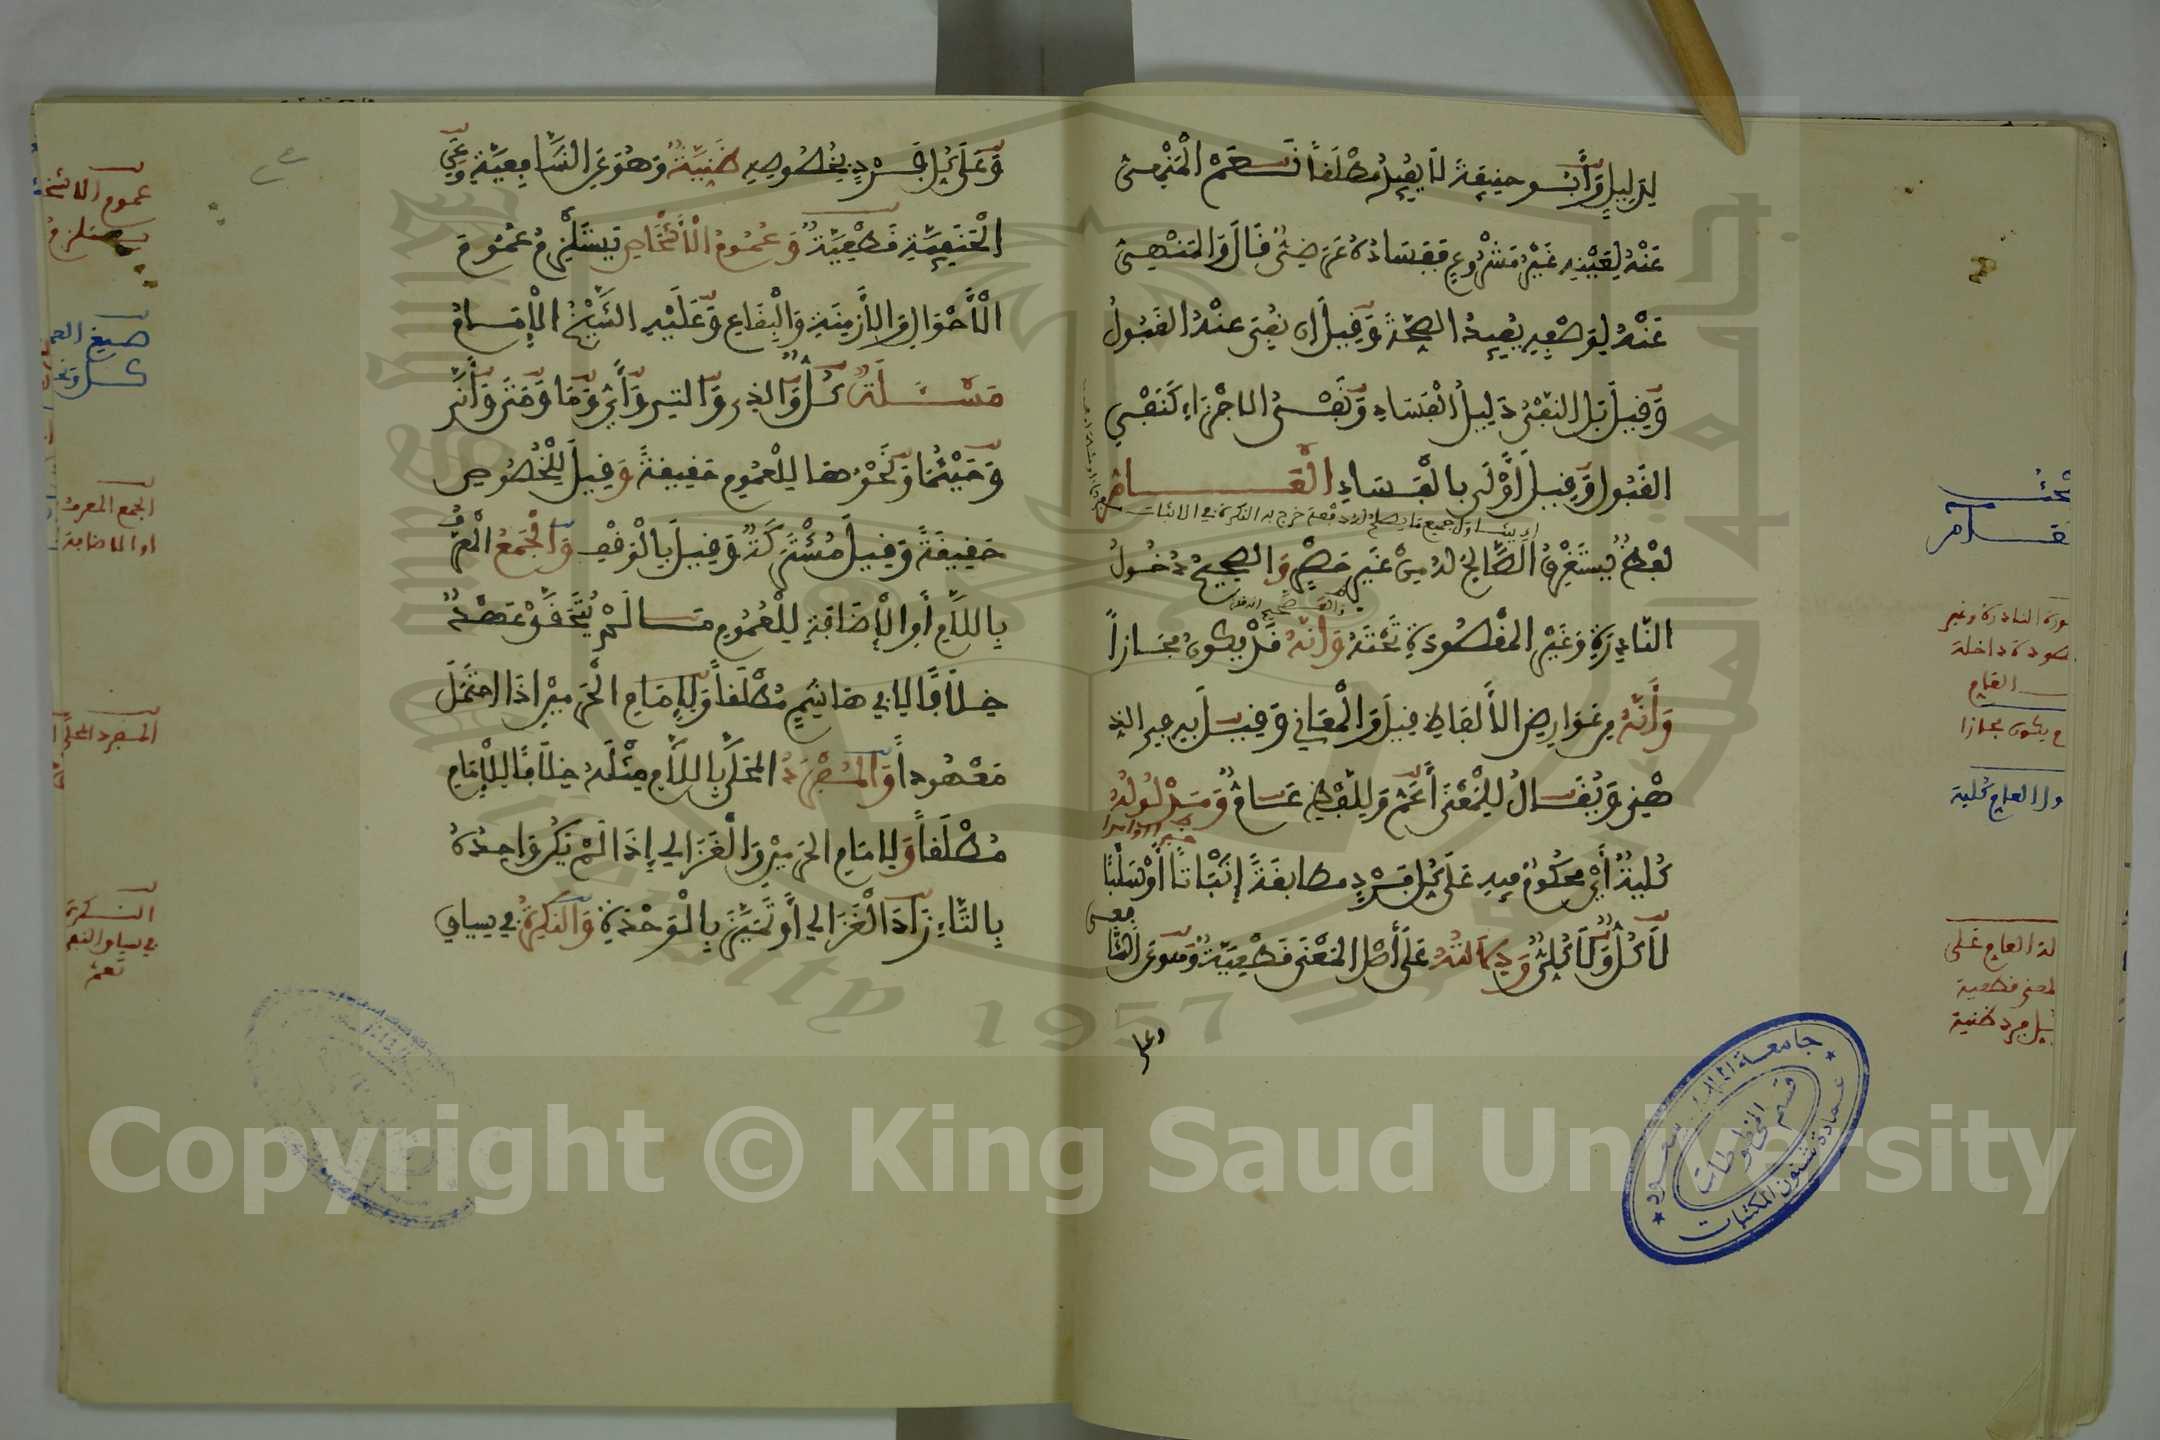 لدليل وأبو حنيفة لا يفيد مطلقا نعم المنهي
عنه لعينه غير مشروع ففساده عرضي ثم قال والمنهي
عنه لوصفه يفيد الصحة وقيل ان نفي عنه القبول
وقيل بل النفي دليل الفساد ونفي الاجزاء كنفي
القبول وقيل أولى بالفساد العام
اي يتناول جميع ما يصلح له دفعة خرج به النكرة في الاثبات
لفظ يستغرق الصالح له من غير حصر والصحيح دخول
النادرة وغير المقصودة تحته وأنه قد يكون مجازا
وأنه من عوارض الألفاظ قيل والمعاني وقيل به في الذ
هني ويقال للمعنى أعم وللفظ عام ومدلوله
كلية أي محكوم فيه على كل فرد مطابقة إثباتا أو سلبا
لا كل ولا كلي ودلالته على أصل المعنى قطعية وهو عن الشا
فعي
وعلى
تحته
مقام
ورة النادرة وغير
صودة داخلة
العام
يكون مجازا
ول العام كلية
لة العام على
لمعنى قطعية
كل فرد ظنية
وعلى كل فرد بخصوصه ظنية وهو عن الشافعية وعن
الحنفية قطعية وعموم الأشخاص يستلزم عموم
الأحوال والأزمنة والبقاع وعليه الشيخ الإمام
مسئلة كل والذي والتي وأي وما ومتى وأين
وحيثما ونحوها للعموم حقيقة وقيل للخصوص
حقيقة وقيل مشتركة وقيل بالوقف والجمع المعرف
باللام أو الإضافة للعموم ما لم يتحقق عهد
خلافا لابي هاشم مطلقا ولإمام الحرمين اذا احتمل
معهودا والمفرد المحلى باللام مثله خلافا للإمام
مطلقا ولإمام الحرمين والغزالي إذا لم يكن واحده
بالتاء زاد الغزالي أو تميز بالوحدة والنكرة في سياق
عموم الاشخا
يستلزم
صيغ العمو
كل ونحو
الجمع المعرف
او الاضافة
المفرد المحلى
النكرة
في سياق النفي
تعم
جامعة الملك سعود
عمادة شئون المكتبات
قسم المخطوطات
1957
Copyright © King Saud University